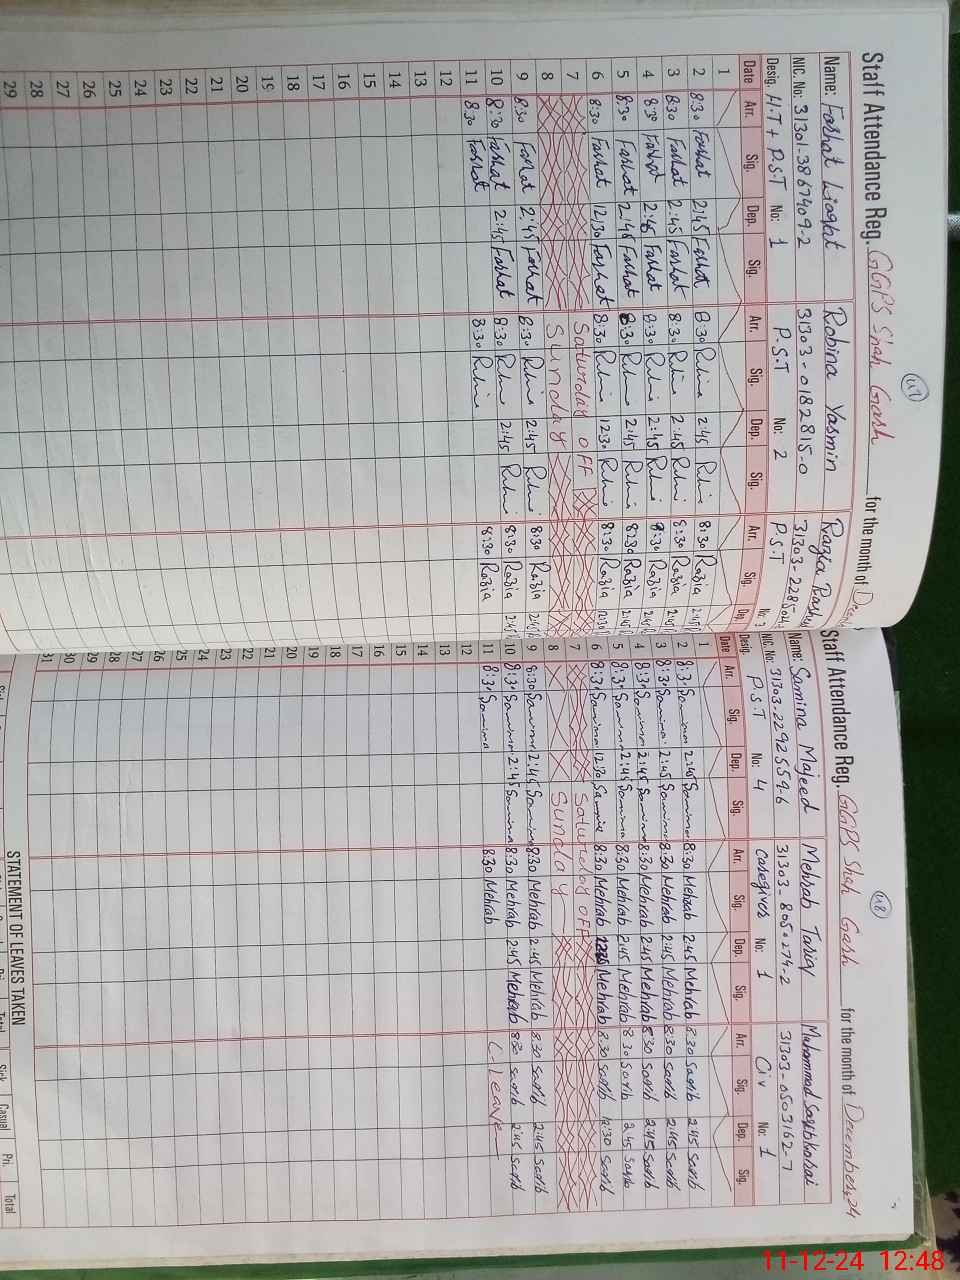 47
Staff Attendance Reg. GGPS Shah Garh for the month of
Name: Farhat Liaqat Robina Yasmin Razia
NIC. No: 31301-3867409-2 31303-0182815-0 31303-2285
Desig. H.T + P.S.T No: 1 P.S.T No: 2 P.S.T No: 3
Date Arr. Sig. Dep. Sig. Arr. Sig. Dep. Sig. Arr. Sig. Dep.
1
2 8:30 Farhat 2:45 Farhat 8:30 Rubina 2:45 Rubina 8:30 Razia 2:45
3 8:30 Farhat 2:45 Farhat 8:30 Rubina 2:45 Rubina 8:30 Razia 2:45
4 8:30 Farhat 2:45 Farhat 8:30 Rubina 2:45 Rubina 8:30 Razia 2:45
5 8:30 Farhat 2:45 Farhat 8:30 Rubina 2:45 Rubina 8:30 Razia 2:45
6 8:30 Farhat 12:30 Farhat 8:30 Rubina 12:30 Rubina 8:30 Razia 12:30
7 Saturday OFF
8 Sunday
9 8:30 Farhat 2:45 Farhat 8:30 Rubina 2:45 Rubina 8:30 Razia 2:45
10 8:30 Farhat 2:45 Farhat 8:30 Rubina 2:45 Rubina 8:30 Razia 2:45
11 8:30 Farhat 8:30 Rubina 8:30 Razia
12
13
14
15
16
17
18
19
20
21
22
23
24
25
26
27
28
29
48
Staff Attendance Reg. GGPS Shah Garh for the month of December, 24
Name: Samina Majeed Mehrab Tariq Muhammad
NIC. No: 31303-2292559-6 31303-8050274-2 31303-0503162-7
Desig. P.S.T No: 4 Caregiver No: 1 Civ No: 1
Date Arr. Sig. Dep. Sig. Arr. Sig. Dep. Sig. Arr. Sig. Dep. Sig.
1
2 8:30 Samina 2:45 Samina 8:30 Mehrab 2:45 Mehrab 8:30 Saqib 2:45 Saqib
3 8:30 Samina 2:45 Samina 8:30 Mehrab 2:45 Mehrab 8:30 Saqib 2:45 Saqib
4 8:30 Samina 2:45 Samina 8:30 Mehrab 2:45 Mehrab 8:30 Saqib 2:45 Saqib
5 8:30 Samina 2:45 Samina 8:30 Mehrab 2:45 Mehrab 8:30 Saqib 2:45 Saqib
6 8:30 Samina 12:30 Samina 8:30 Mehrab 12:30 Mehrab 8:30 Saqib 12:30 Saqib
7 Saturday OFF
8 Sunday
9 8:30 Samina 2:45 Samina 8:30 Mehrab 2:45 Mehrab 8:30 Saqib 2:45 Saqib
10 8:30 Samina 2:45 Samina 8:30 Mehrab 2:45 Mehrab 8:30 Saqib 2:45 Saqib
11 8:30 Samina 8:30 Mehrab C-Leave
12
13
14
15
16
17
18
19
20
21
22
23
24
25
26
27
28
29
30
31
STATEMENT OF LEAVES TAKEN
Pri. Total Sick Casual Pri. Total
11-12-24 12:48